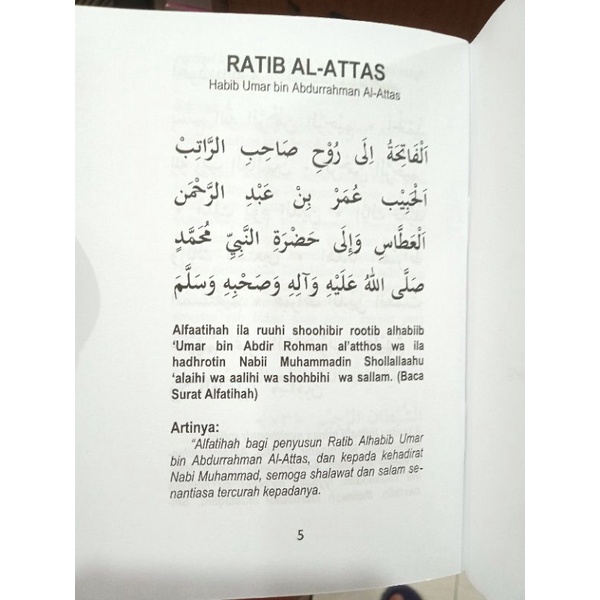 RATIB AL-ATTAS
Habib Umar bin Abdurrahman Al-Attas
اَلْفَاتِحَةُ اِلَى رُوْحِ صَاحِبِ الرَّاتِبْ
اَلْحَبِيْب عُمَرْ بِنْ عَبْدِ الرَّحْمٰن
اَلْعَطَّاسِ وَإِلَى حَضْرَةِ النَّبِيِّ مُحَمَّدٍ
صَلَّى اللهُ عَلَيْهِ وَآلِهِ وَصَحْبِهِ وَسَلَّمَ
Alfaatihah ila ruuhi shoohibir rootib alhabiib
‘Umar bin Abdir Rohman al’atthos wa ila
hadhrotin Nabii Muhammadin Shollallaahu
‘alaihi wa aalihi wa shohbihi wa sallam. (Baca
Surat Alfatihah)
Artinya:
“Alfatihah bagi penyusun Ratib Alhabib Umar
bin Abdurrahman Al-Attas, dan kepada kehadirat
Nabi Muhammad, semoga shalawat dan salam se-
nantiasa tercurah kepadanya.
5